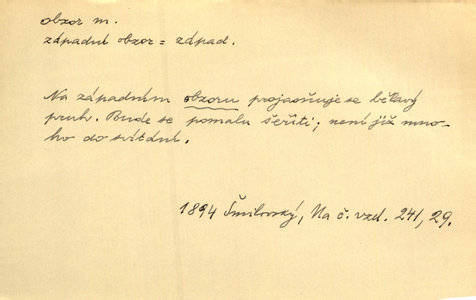 obzor m.
západní obzor = západ.
Na západním obzoru projasňuje se bělavý
pruh. Bude se pomalu šeřiti; není již mno-
ho do svítání.
1894 Šmilovský, Na č. vzd. 241, 29.